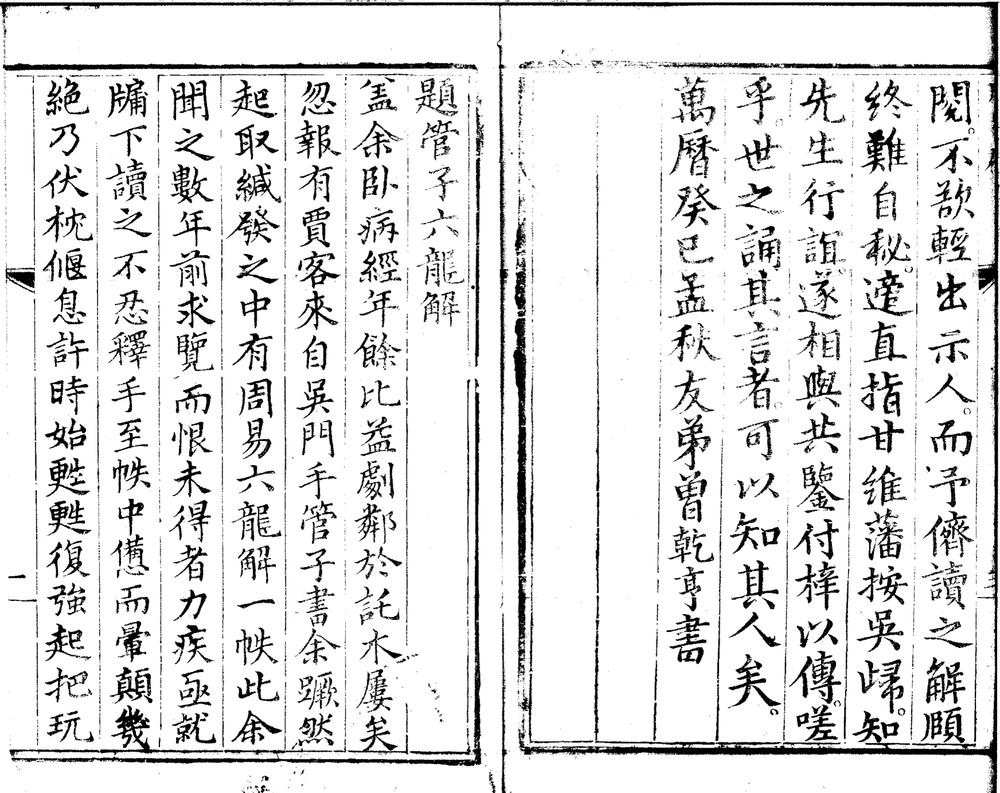 閱。不欲輕出示人。而予儕讀之解頤
終難自秘。適直指甘維藩按吳歸。知
先生行誼。遂相與共鑒付梓以傳。嗟
乎。世之誦其言者。可以知其人矣。
萬曆癸巳孟秋友弟曾乾亨書
題管子六龍解
盖余卧病經年餘比益劇鄰於託木屢矣
忽報有賈客來自吳門手管子書余蹶然
起取緘發之中有周易六龍解一帙此余
聞之數年前求覽而恨未得者力疾亟就
牖下讀之不忍釋手至帙中憊而暈顛幾
絕乃伏枕偃息許時始甦甦復強起把玩
二